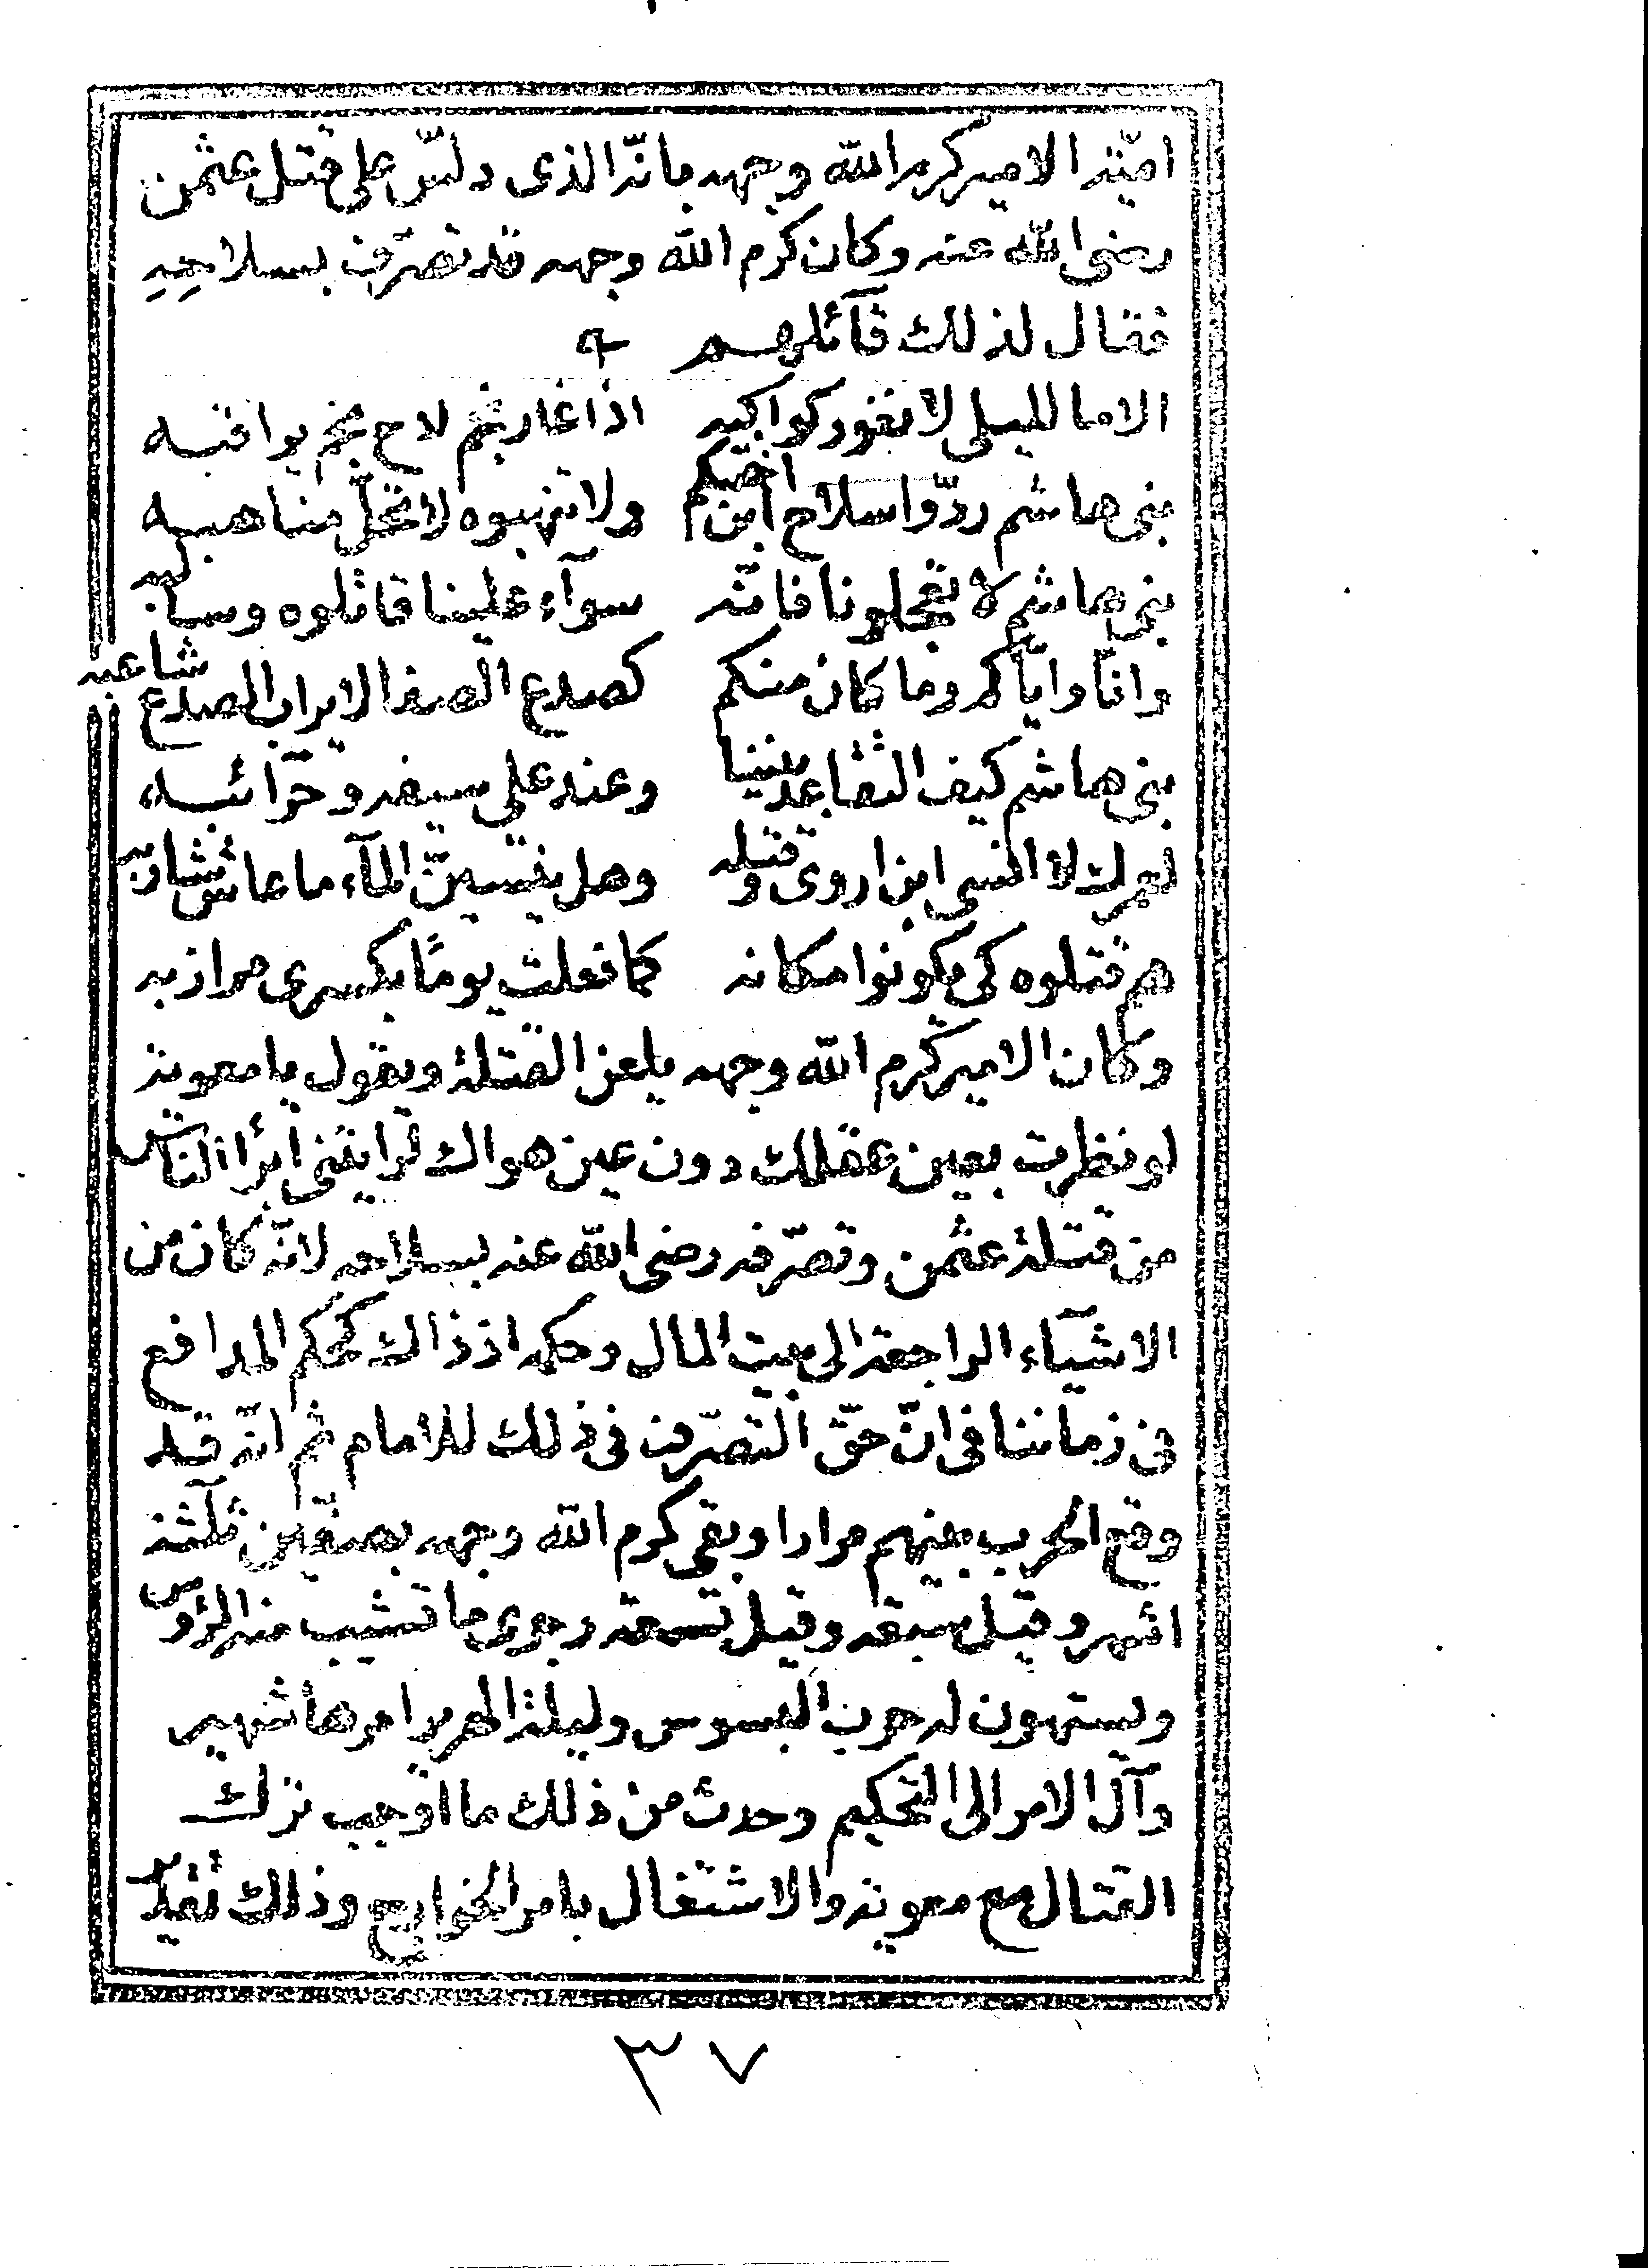 اميّة الامير كرم الله وجهه بانّه الذى دلّس على قتل عثمن
رضى الله عنه وكان كرم الله وجهه قد تصرّف بسلاحِهِ
فقال لذلك قآئلهم
الا ما لليلى لا تغور كواكبه اذا غار نجم لاح نجم يراقبه
بنى هاشم ردّوا سلاح ابن اختكم ولا تنهبوه لا تحلّ مناهبه
بنى هاشم لا تعجلونا فانّه سوآء علينا قاتلوه وسالبه
وانّا وايّاكم وما كان منكم كصدع الصفا لا يراب الصدع شاعبه
بنى هاشم كيف التقاعد بيننا وعند على سيفه وحرّائبه
لعمرك لا انسى ابن اروى وقتله وهل ينسينّ المآء ما عاش شاربه
هم قتلوه كى يكونوا مكانه كما فعلت يومًا بكسرى مرازبه
وكان الامير كرم الله وجهه يلعن القتلة ويقول يا معوية
لو نظرت بعين عقلك دون عين هواك لرايتنى ابرأ الناس
من قتلة عثمن وتصرّفه رضى الله عنه بسلاحه لانّه كان من
الاشيآء الراجعة الى بيت المال وحكمه اذ ذاك كحكم المدافع
فى زماننا فى انّ حقّ التصرّف فى ذلك للامام ثم انّه قد
وقع الحرب بينهم مرارا وبقى كرم الله وجهه بصفّين ثلثة
اشهر وقيل سبعة وقيل تسعة وجرى ما تشيب منه الرؤس
ويستهون له حرب البسوس وليلة الهرير امرها شهير
وآل الامر الى التحكيم وحدث من ذلك ما اوجب ترك
القتال مع معوية والاشتغال بامر الخوارج وذلك تقدير
٣٧